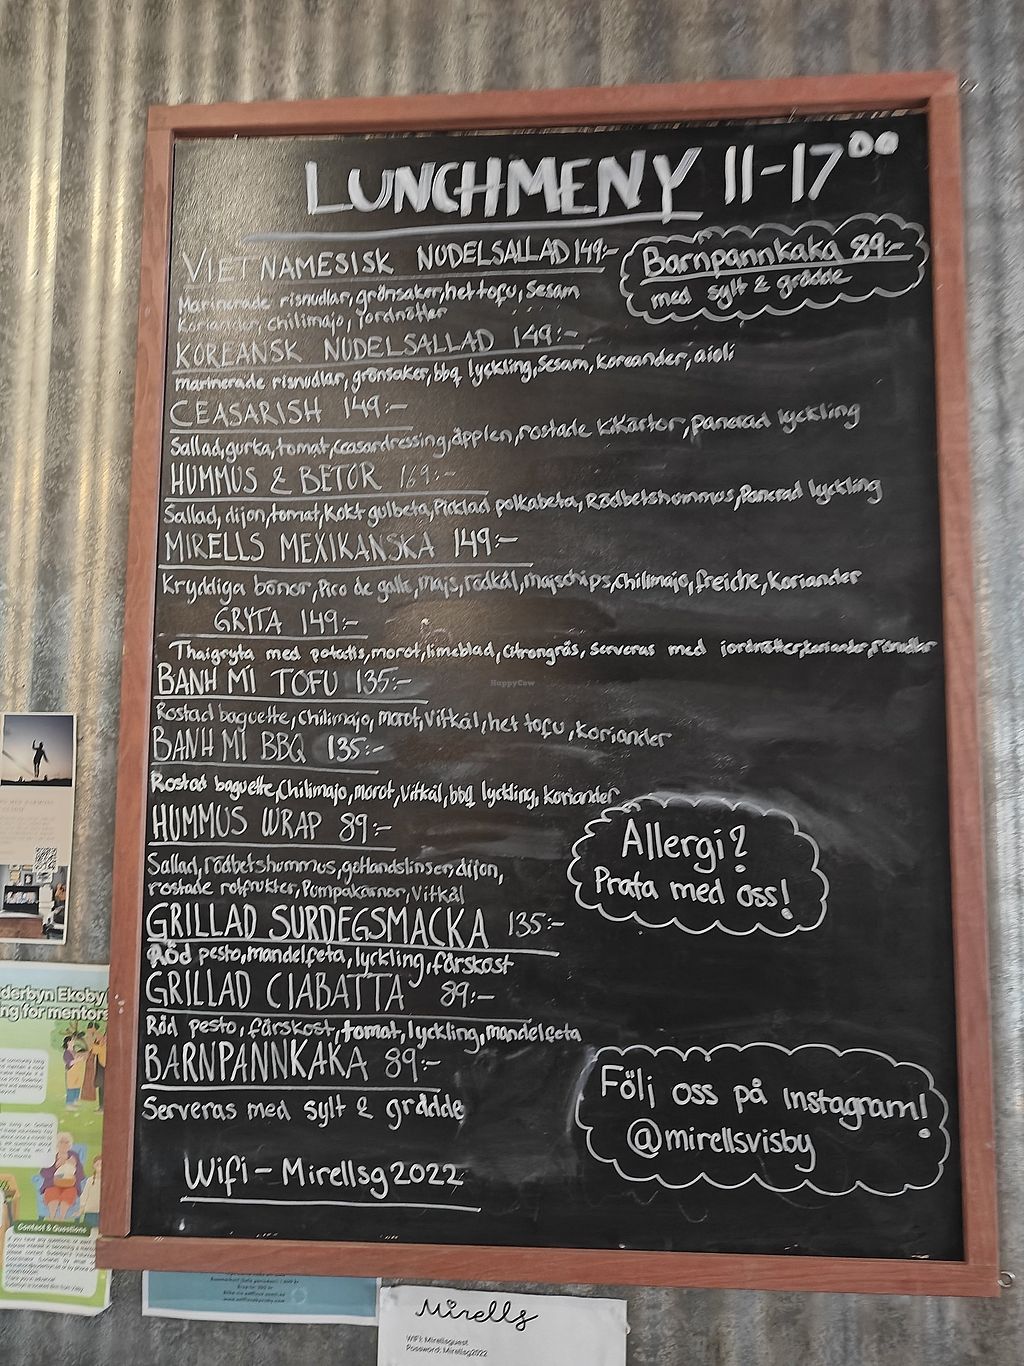 LUNCHMENY 11-17⁰⁰
VIETNAMESISK NUDELSALLAD 149:-
Marinerade risnudlar, grönsaker, het tofu, Sesam
Koriander, chilimajo, jordnötter
Barnpannkaka 89:-
med sylt & grädde
KOREANSK NUDELSALLAD 149:-
Marinerade risnudlar, grönsaker, bbq lyckling, Sesam, Koreander, aioli
CEASARISH 149:-
Sallad, gurka, tomat, ceasardressing, äpplen, rostade kikärtor, panerad lyckling
HUMMUS & BETOR 169:-
Sallad, dijon, tomat, Kokt gulbeta, Picklad polkabeta, Rödbetshummus, Panerad lyckling
MIRELLS MEXIKANSKA 149:-
Kryddiga bönor, Pico de gallo, Majs, rödkål, majschips, Chilimajo, freiche, Koriander
GRYTA 149:-
Thaigryta med potatis, morot, limeblad, citrongräs, serveras med jordnötter, koriander, risnudlar
BANH MI TOFU 135:-
Rostad baguette, Chilimajo, morot, Vitkål, het tofu, Koriander
BANH MI BBQ 135:-
Rostad baguette, Chilimajo, morot, Vitkål, bbq lyckling, Koriander
HUMMUS WRAP 89:-
Sallad, rödbetshummus, gotlandslinser, dijon,
rostade rotfrukter, Pumpakärnor, Vitkål
Allergi?
Prata med oss!
GRILLAD SURDEGSMACKA 135:-
Röd pesto, mandelfeta, lyckling, färskost
GRILLAD CIABATTA 89:-
Röd pesto, färskost, tomat, lyckling, mandelfeta
BARNPANNKAKA 89:-
Serveras med sylt & grädde
Följ oss på Instagram!
@mirellsvisby
Wifi - Mirellsg2022
HappyCow
derbyn Ekoby
ng for mentors
Contact & Questions
Mirells
WIFI: Mirellsguest
Password: Mirellsg2022